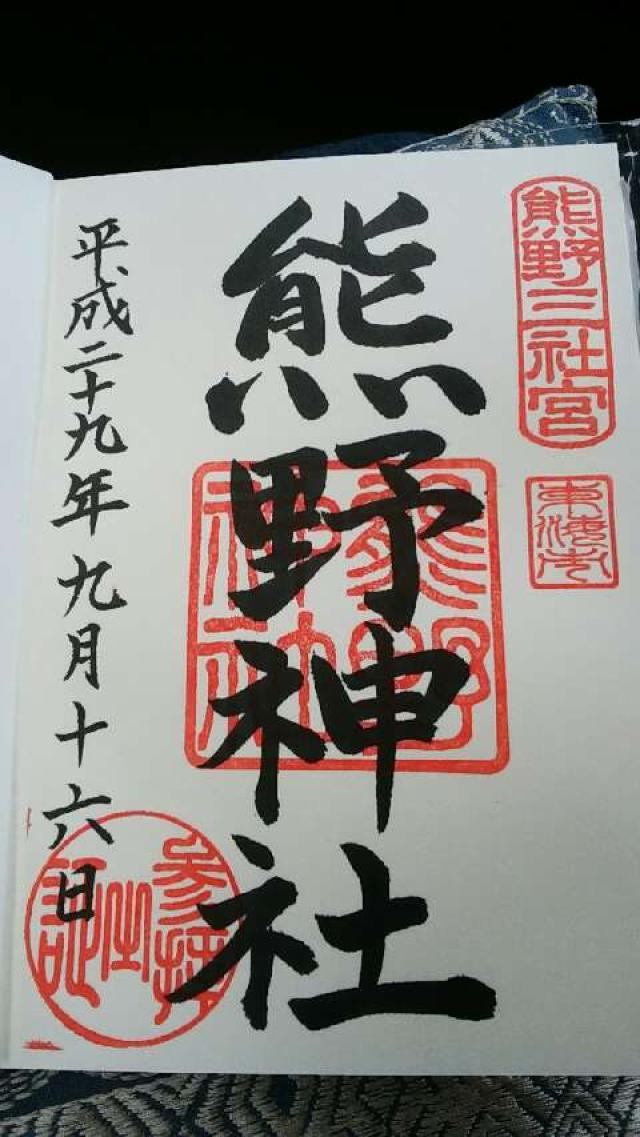 熊野三社宮
熊野神社
熊野神社
平成二十九年九月十六日
参拝之